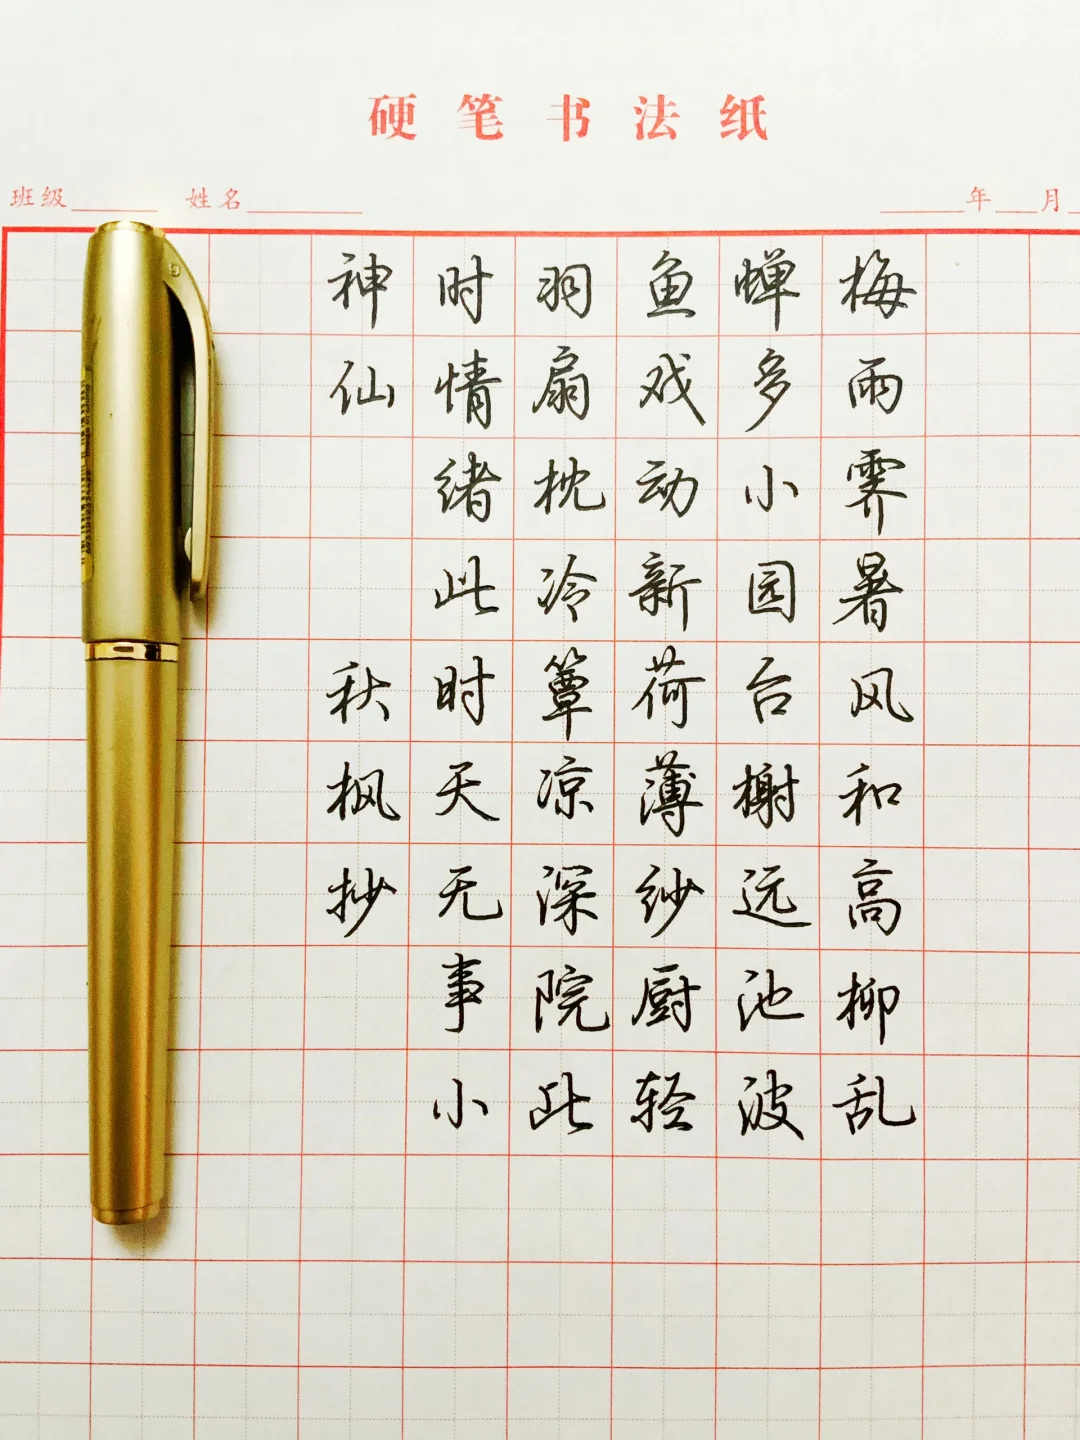 硬笔书法纸
班级 姓名 年 月
梅雨霁暑风和高柳乱
蝉多小园台榭远池波
鱼戏动新荷薄纱厨轻
羽扇枕冷簟凉深院此
时情绪此时天无事小
神仙 秋枫抄